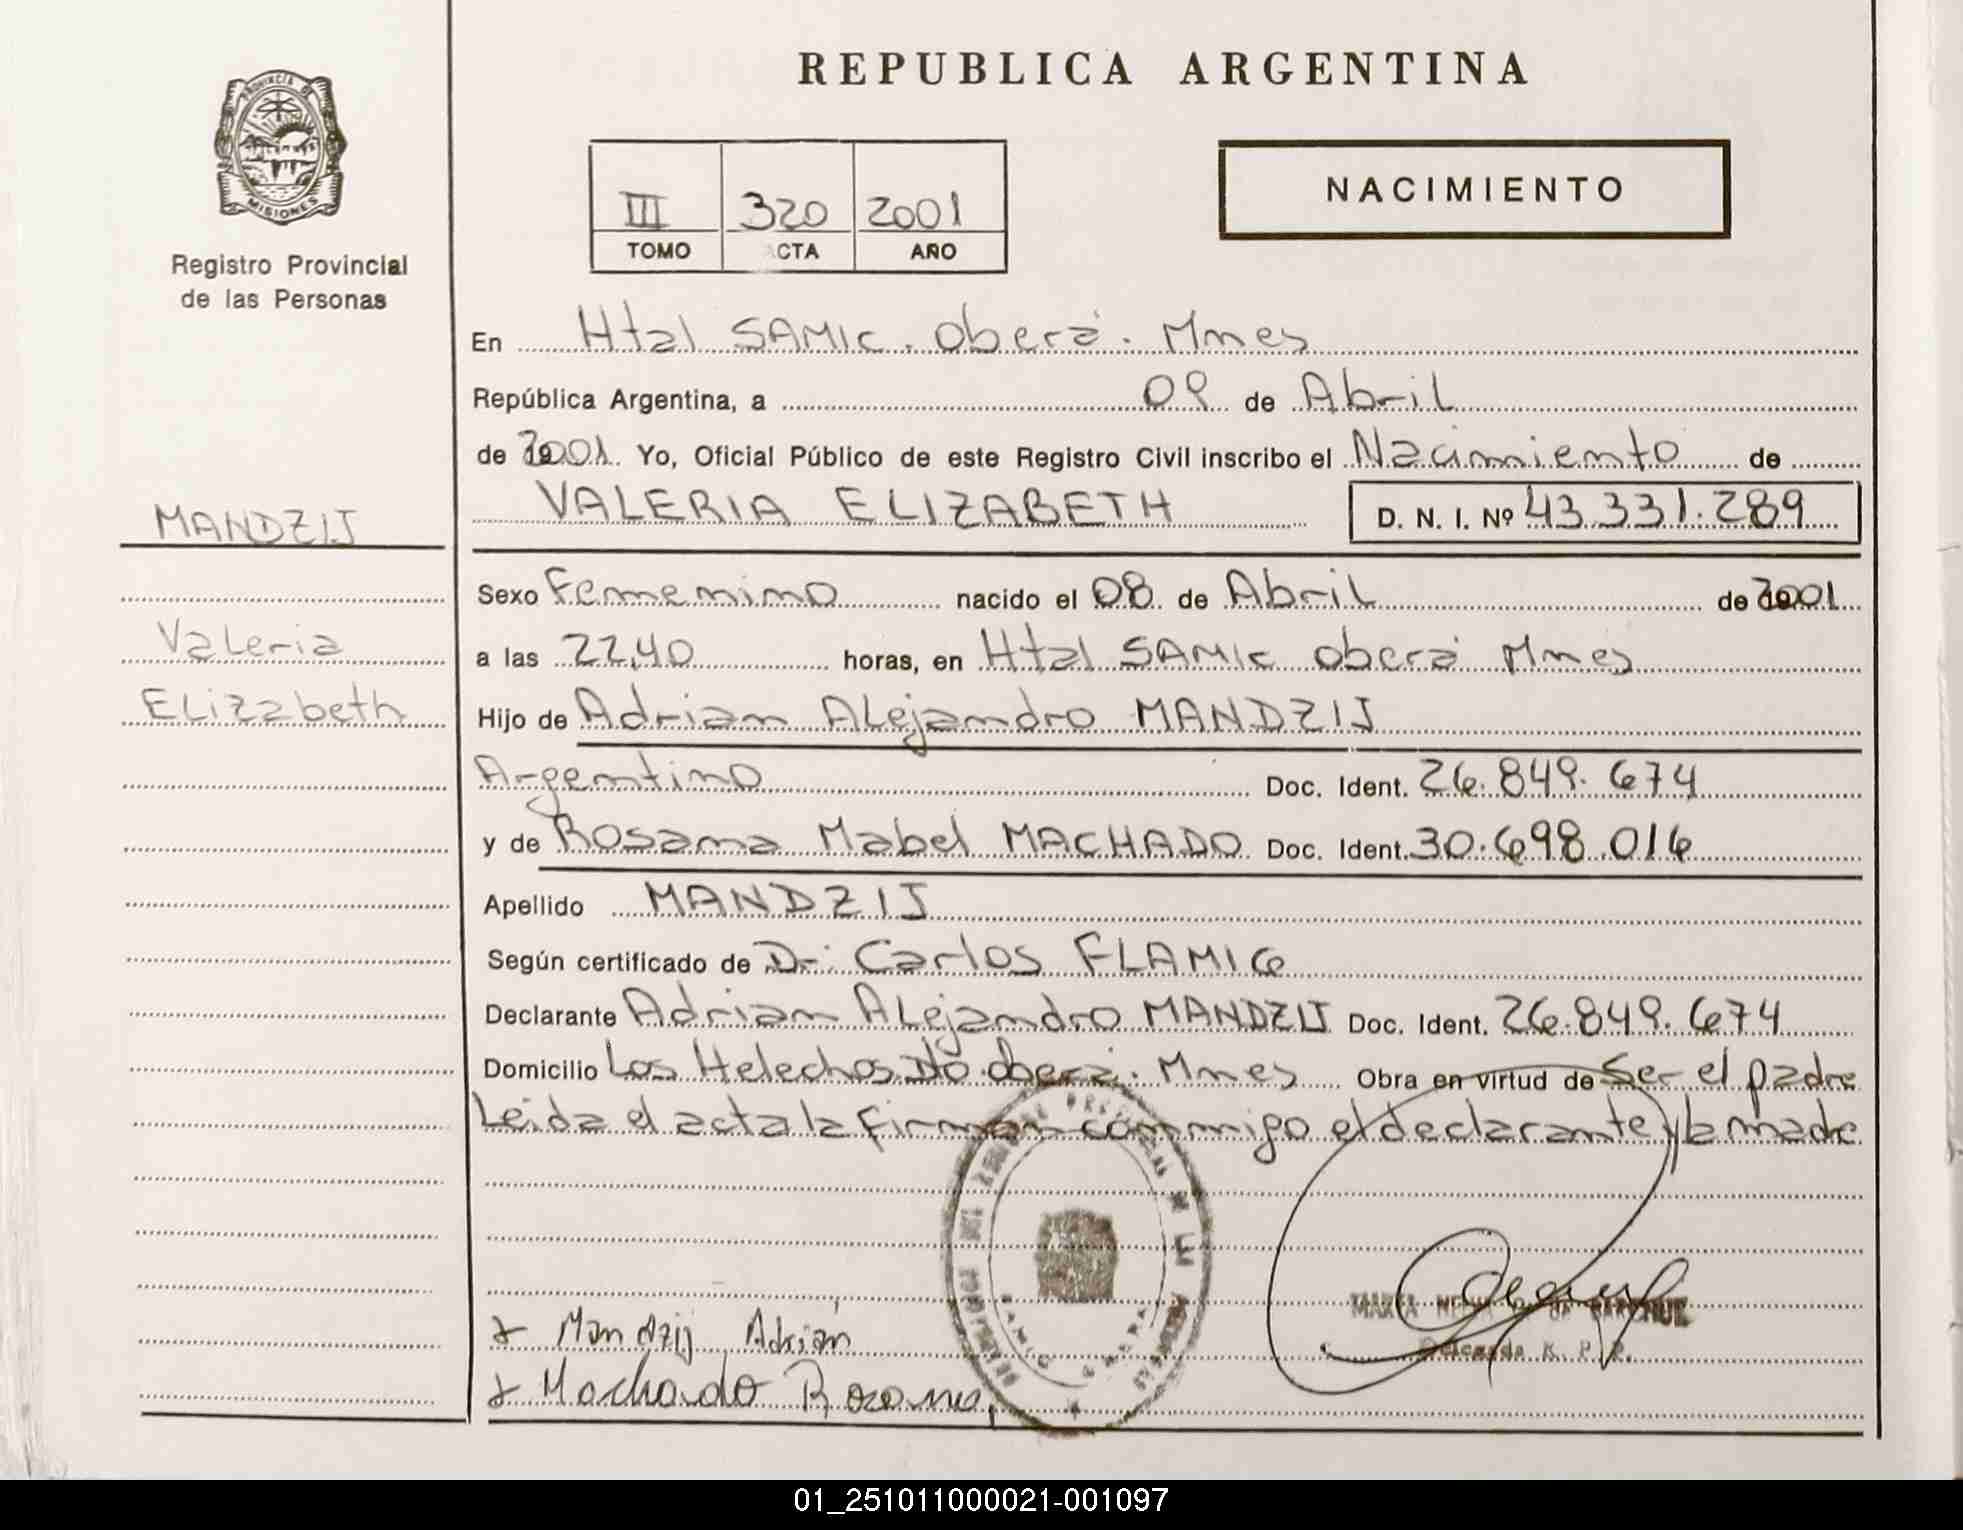 REPUBLICA ARGENTINA
PROVINCIA DE
MISIONES
Registro Provincial
de las Personas
NACIMIENTO
III 320 2001
TOMO ACTA AÑO
En Htal SAMIC. Oberá. Mnes
República Argentina, a 09 de Abril
de 2001. Yo, Oficial Público de este Registro Civil inscribo el Nacimiento de
VALERIA ELIZABETH D. N. I. Nº 43.331.289
MANDZIJ
Valeria
Elizabeth
Sexo Femenino nacido el 08 de Abril de 2001
a las 22,40 horas, en Htal SAMIC Oberá Mnes
Hijo de Adrian Alejandro MANDZIJ
Argentino Doc. Ident. 26.849.674
y de Rosana Mabel MACHADO Doc. Ident. 30.698.016
Apellido MANDZIJ
Según certificado de Dr. Carlos FLAMIG
Declarante Adrian Alejandro MANDZIJ Doc. Ident. 26.849.674
Domicilio Los Helechos Dto. Oberá. Mnes Obra en virtud de Ser el padre
Leida el acta la firman conmigo el declarante y la madre
Mandzij Adrián
Machado Rosana
SAMIC OBERA
Delegada R. P. P.
01_251011000021-001097